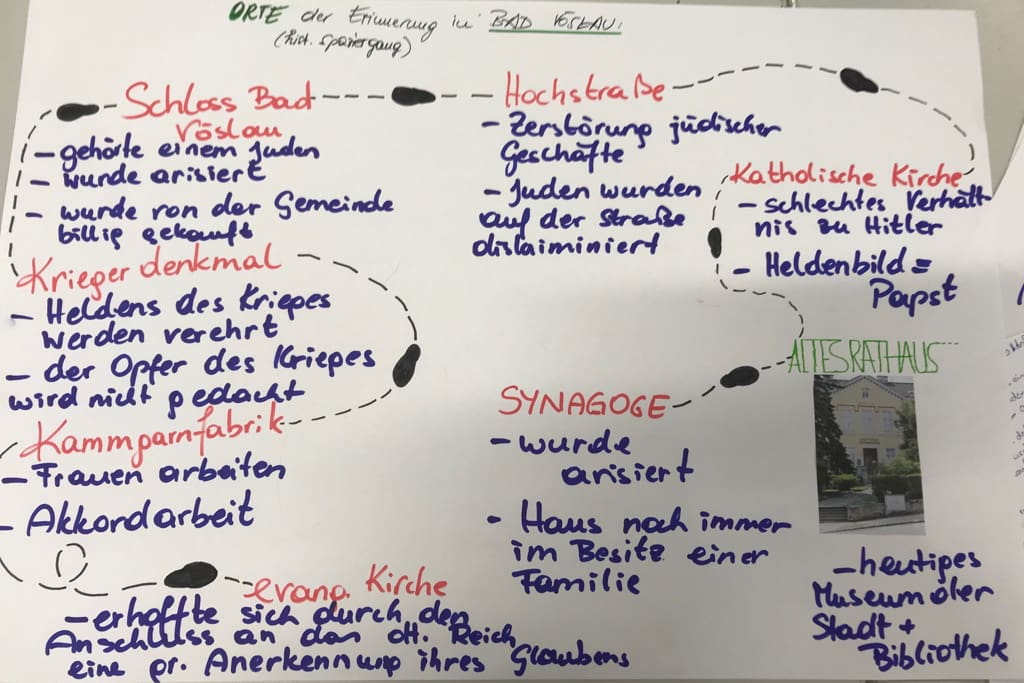 ORTE der Erinnerung in BAD VÖSLAU:
(hist. Spaziergang)
Schloss Bad
Vöslau
- gehörte einem Juden
- wurde arisiert
- wurde von der Gemeinde
billig gekauft
Kriegerdenkmal
- Heldens des Krieges
werden verehrt
- der Opfer des Krieges
wird nicht gedacht
Kammgarnfabrik
- Frauen arbeiten
- Akkordarbeit
evang. Kirche
- erhoffte sich durch den
Anschluss an das dt. Reich
eine gr. Anerkennung ihres Glaubens
Hochstraße
- Zerstörung jüdischer
Geschäfte
- Juden wurden
auf der Straße
diskiminiert
Katholische Kirche
- schlechtes Verhält-
nis zu Hitler
- Heldenbild =
Papst
ALTES RATHAUS
- heutiges
Museum der
Stadt +
Bibliothek
SYNAGOGE
- wurde
arisiert
- Haus noch immer
im Besitz einer
Familie